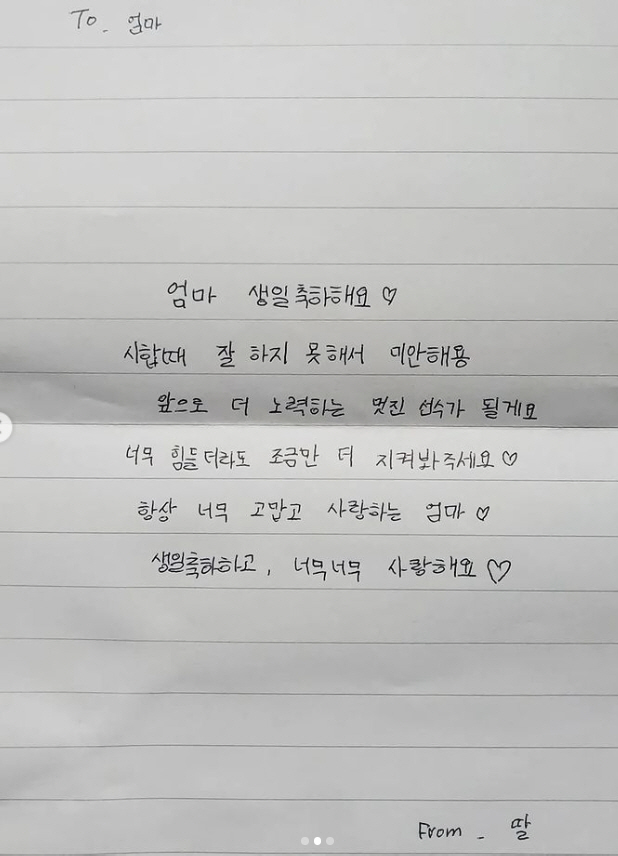 To. 엄마
엄마 생일축하해요 ♡
시합때 잘 하지 못해서 미안해용
앞으로 더 노력하는 멋진 선수가 될게요
너무 힘들더라도 조금만 더 지켜봐주세요 ♡
항상 너무 고맙고 사랑하는 엄마 ♡
생일축하하고, 너무너무 사랑해요 ♡
From - 딸